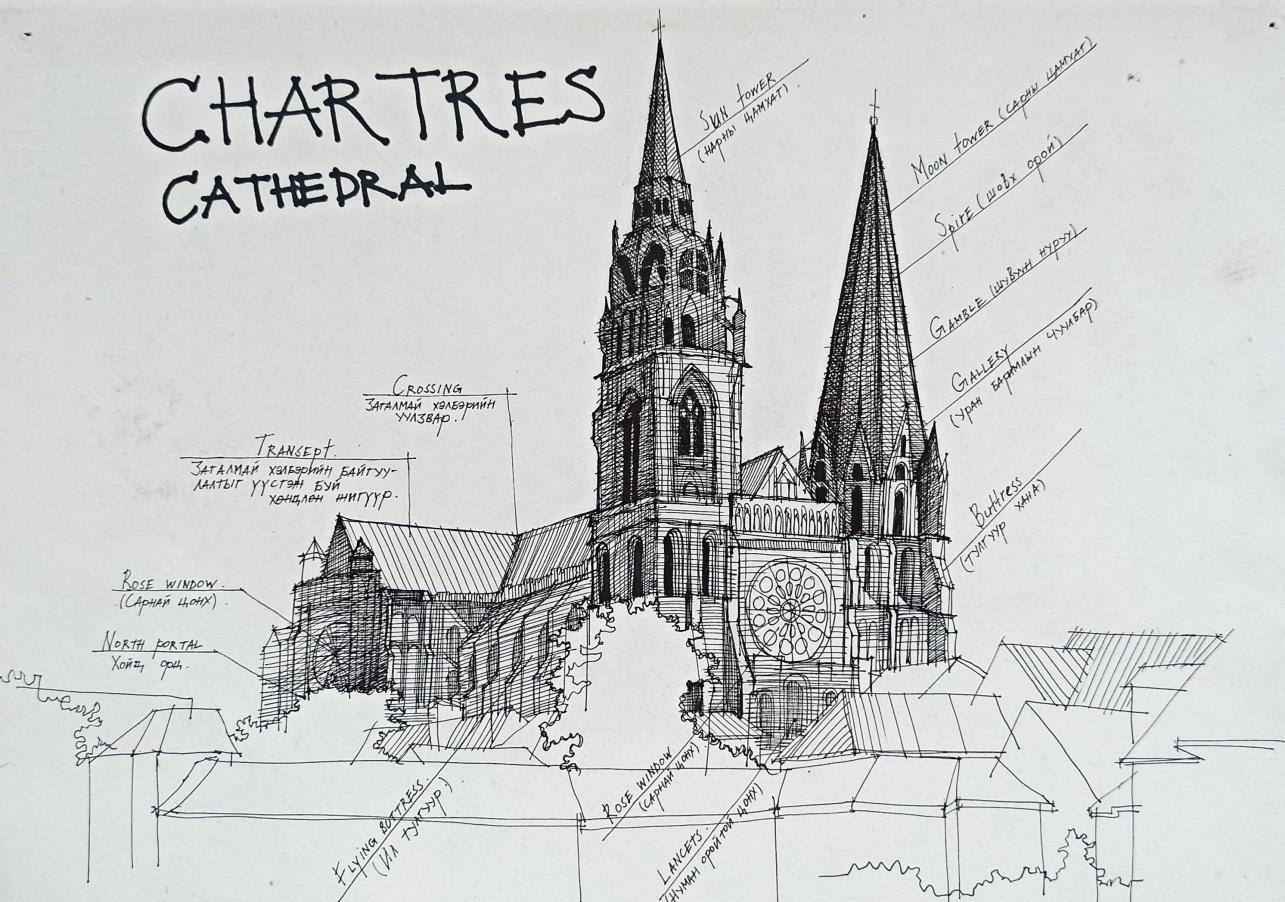 CHARTRES
CATHEDRAL
SUN TOWER
(НАРНЫ ЦАМХАГ)
MOON TOWER (САРНЫ ЦАМХАГ)
SPIRE (ШОВХ ОРОЙ)
GAMBLE (ШУВУУН НУРУУ)
GALLERY
(УРАН БАРИМЛЫН ЧУУЛБАР)
BUTTRESS
(ТУЛГУУР ХАНА)
CROSSING
ЗАГАЛМАЙ ХЭЛБЭРИЙН
УУЛЗВАР.
TRANSEPT.
ЗАГАЛМАЙ ХЭЛБЭРИЙН БАЙГУУ-
ЛАЛТЫГ ҮҮСГЭЖ БУЙ
ХӨНДЛӨН ЖИГҮҮР.
ROSE WINDOW.
(САРНАЙ ЦОНХ)
NORTH PORTAL
ХОЙД ОРЦ.
FLYING BUTTRESS.
(ИЛ ТУЛГУУР.)
ROSE WINDOW
(САРНАЙ ЦОНХ)
LANCETS.
(НУМАН ОРОЙТОЙ ЦОНХ)